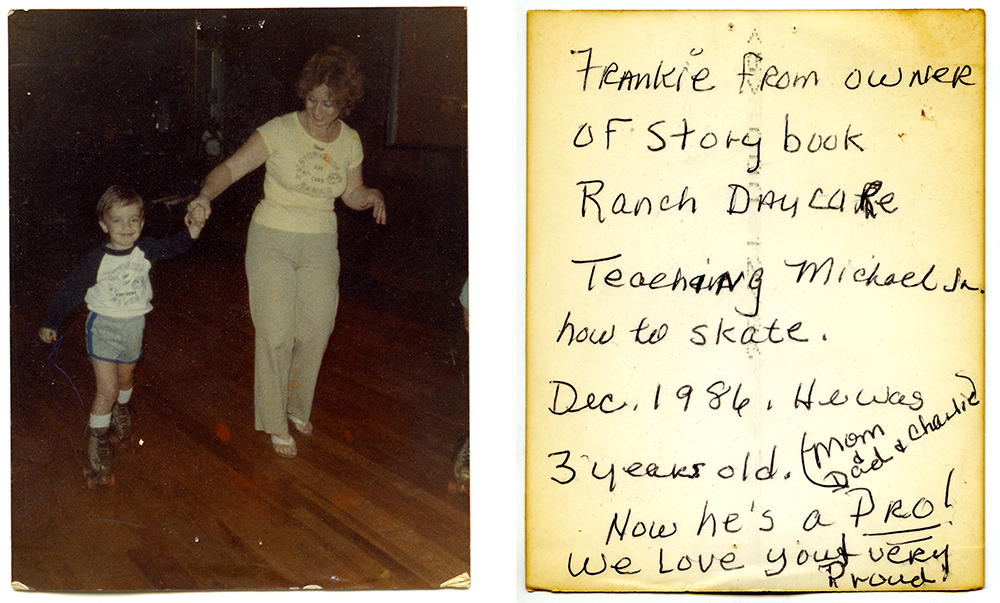 STORYBOOK
DAY
CARE
RANCH
Frankie From owner
of Story book
Ranch Daycare
Teaching Michael Jr.
how to skate.
Dec. 1986. He was
3 years old. (Mom
& Dad & Charlie)
Now he's a PRO!
We Love you & very
Proud!